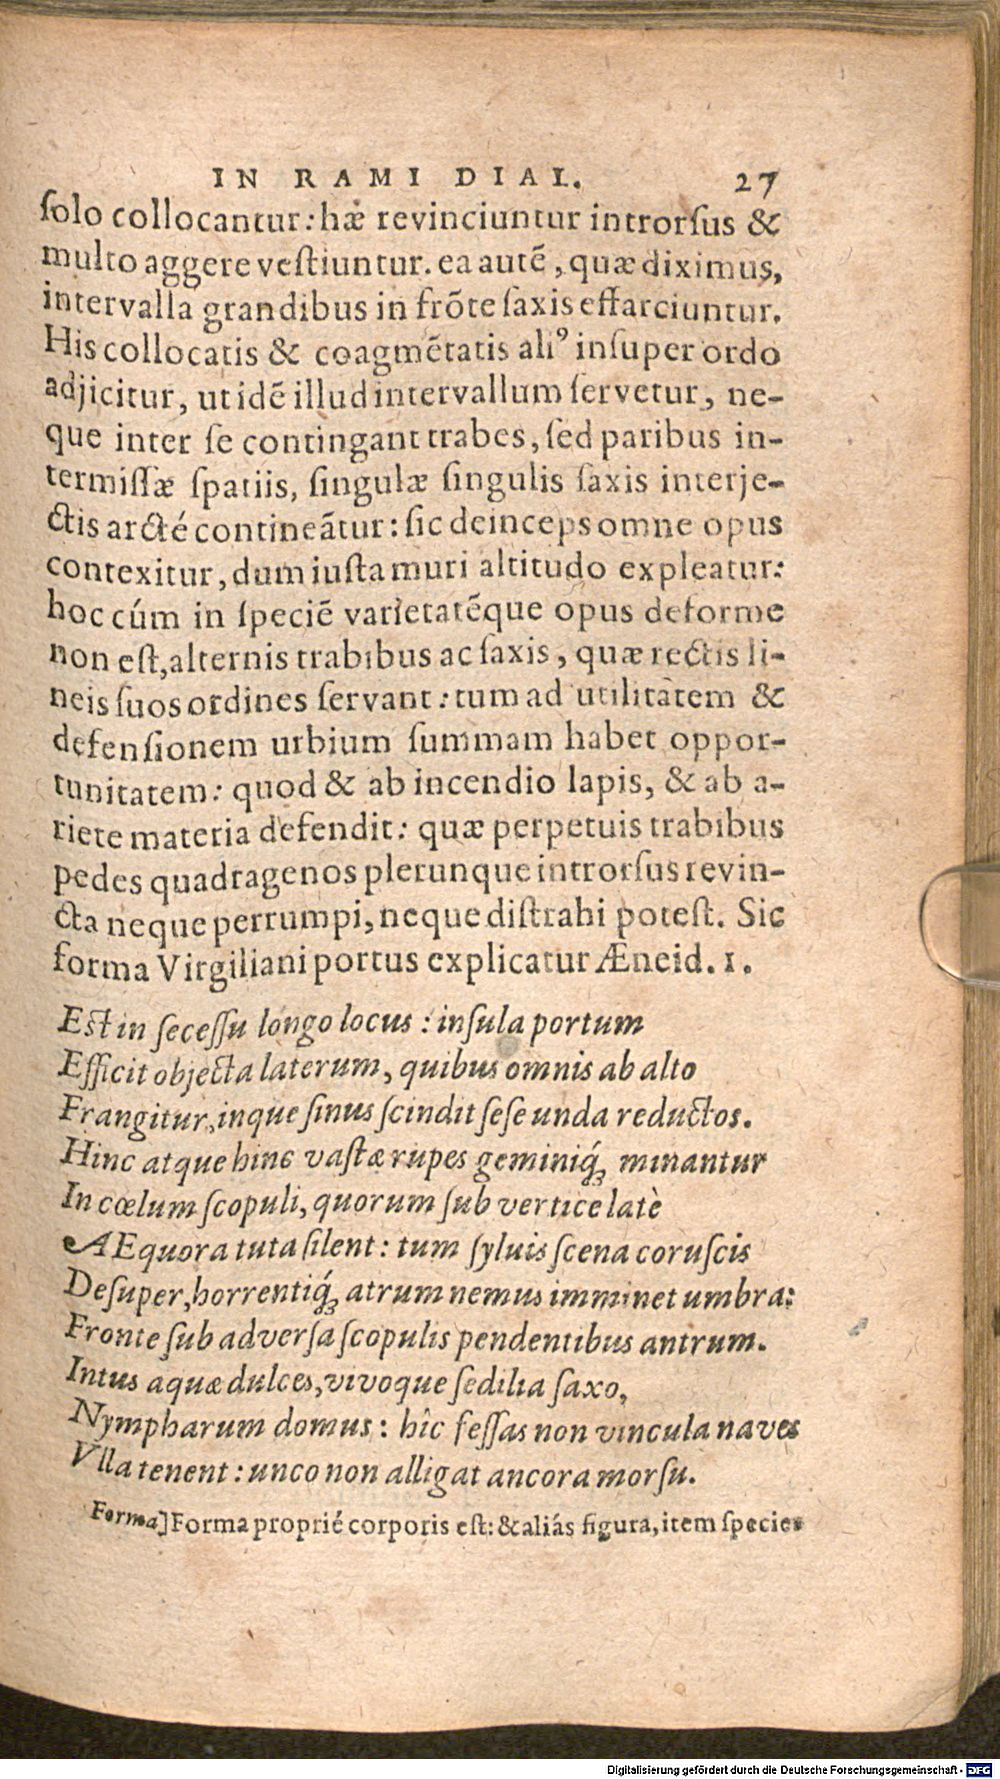 IN RAMI DIAL. 27
ſolo collocantur: hæ revinciuntur introrſus &
multo aggere veſtiuntur. ea autē, quæ diximus,
intervalla grandibus in frōte ſaxis effarciuntur.
His collocatis & coagmētatis aliꝰ inſuper ordo
adjicitur, ut idē illud intervallum ſervetur, ne-
que inter ſe contingant trabes, ſed paribus in-
termiſſæ ſpatiis, ſingulæ ſingulis ſaxis interje-
ctis arcté contineātur: ſic deinceps omne opus
contexitur, dum iuſta muri altitudo expleatur:
hoc cúm in ſpeciē varietatēque opus deforme
non eſt, alternis trabibus ac ſaxis, quæ rectis li-
neis ſuos ordines ſervant: tum ad utilitatem &
defenſionem urbium ſummam habet oppor-
tunitatem: quod & ab incendio lapis, & ab a-
riete materia defendit: quæ perpetuis trabibus
pedes quadragenos plerunque introrſus revin-
cta neque perrumpi, neque diſtrahi poteſt. Sic
forma Virgiliani portus explicatur Æneid. 1.
Eſt in ſeceſſu longo locus: inſula portum
Efficit objecta laterum, quibus omnis ab alto
Frangitur, inque ſinus ſcindit ſeſe unda reductos.
Hinc atque hinc vaſtæ rupes geminiq́; minantur
In cœlum ſcopuli, quorum ſub vertice latè
AEquora tuta ſilent: tum ſyluis ſcena coruſcis
Deſuper, horrentiq́; atrum nemus imminet umbra:
Fronte ſub adverſa ſcopulis pendentibus antrum.
Intus aquæ dulces, vivoque ſedilia ſaxo,
Nympharum domus: hîc feſſas non vincula naves
Vlla tenent: unco non alligat ancora morſu.
Forma] Forma proprié corporis eſt: & aliás figura, item ſpecies
Digitalisierung gefördert durch die Deutsche Forschungsgemeinschaft - DFG